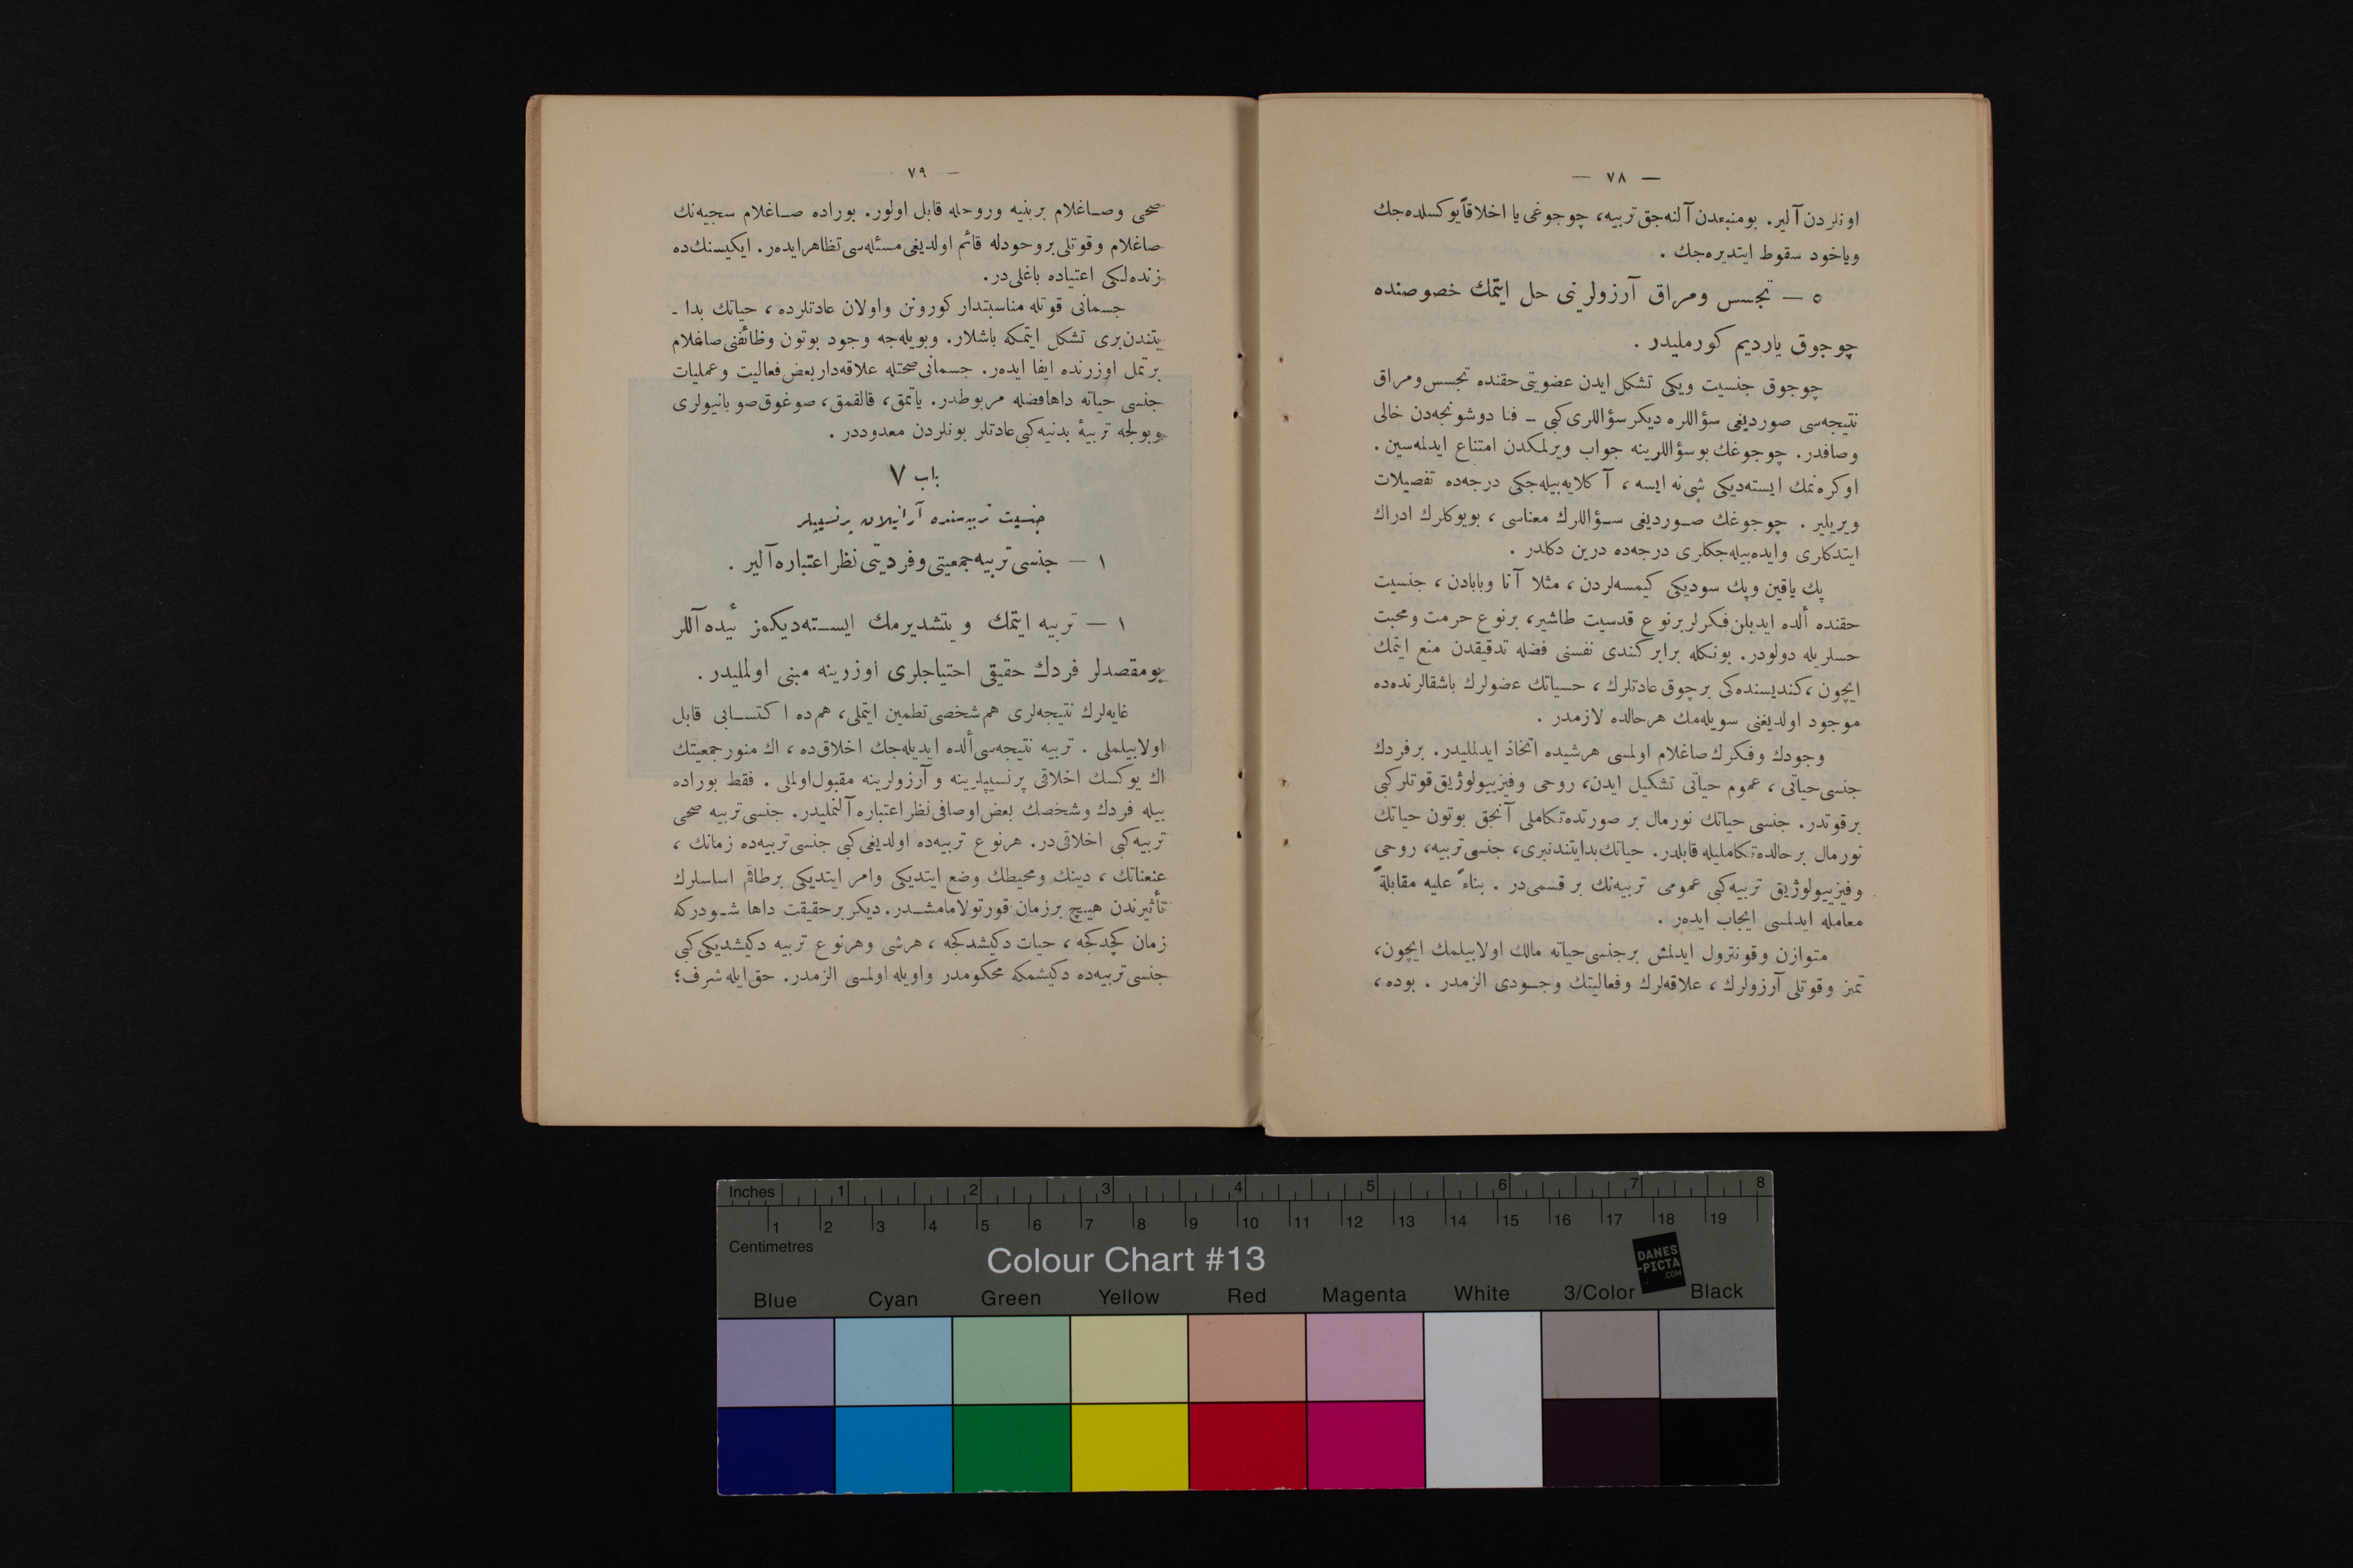 — ٧٨ —
اونلردن آلير. بومنبعدن آلنه‌جق تربيه، چوجوغی يا اخلاقاً يوكسلده‌جك
وياخود سقوط ايتديره‌جك .
٥ — تجسس ومراق آرزولرينی حل ايتمك خصوصنده
چوجوق يارديم كورمليدر .
چوجوق جنسيت ويكی تشكل ايدن عضويتی حقنده تجسس ومراق
نتيجه‌سی صورديغی سؤاللره ديكر سؤاللری كبی ـ فنا دوشونجه‌دن خالی
وصافدر. چوجوغك بوسؤاللرينه جواب ويرلمكدن امتناع ايدلمه‌سين .
اوكره‌نمك ايسته‌ديكی شی نه ايسه ، آكلايه‌بيله‌جكی درجه‌ده تفصيلات
ويريلير . چوجوغك صـورديغی سـؤاللرك معناسی ، بويوكلرك ادراك
ايتدكلری وايده‌بيله‌جكلری درجه‌ده درين دكلدر .
پك ياقين وپك سوديكی كيمسه‌لردن ، مثلا آنا وبابادن ، جنسيت
حقنده ألده ايديلن فكرلر برنوع قدسيت طاشير، برنوع حرمت ومحبت
حسلريله دولودر. بونكله برابر كندی نفسنی فضله تدقيقدن منع ايتمك
ايچون ، كنديسنده‌كی برچوق عادتلرك ، حسياتك عضولرك باشقالرنده‌ده
موجود اولديغنی سويله‌مك هرحالده لازمدر .
وجودك وفكرك صاغلام اولمسی هرشيده اتخاذ ايدلمليدر. برفردك
جنسی حياتی ، عموم حياتی تشكيل ايدن، روحی وفيزييولوژيق قوتلركبی
برقوتدر. جنسی حياتك نورمال بر صورتده تكاملی آنجق بوتون حياتك
نورمال برحالده تكامليله قابلدر. حياتك بدايتندنبری، جنسی تربيه، روحی
وفيزييولوژيق تربيه كبی عمومی تربيه‌نك بر قسمی‌در . بناءً عليه مقابلةً
معامله ايدلمسی ايجاب ايده‌ر .
متوازن وقونترول ايدلمش برجنسی حياته مالك اولابيلمك ايچون،
تميز وقوتلی آرزولرك ، علاقه‌لرك وفعاليتك وجـودی الزمدر . بوده ،
— ٧٩
صحی وصـاغلام بربنيه وروحله قابل اولور. بوراده صـاغلام سجيه‌نك
صاغلام وقوتلی بروجودله قائم اولديغی مسئله‌سی تظاهر ايده‌ر. ايكيسنك‌ده
زنده‌لكی اعتياده باغلی‌در.
جسمانی قوتله مناسبتدار كورونن واولان عادتلرده ، حياتك بدا ـ
يتندن‌بری تشكل ايتمكه باشلار. وبويله‌جه وجود بوتون وظائفنی صاغلام
برتمل اوزرنده ايفا ايده‌ر. جسمانی صحتله علاقه‌دار بعض فعاليت وعمليات
جنسی حياته داها فضله مربوطدر. ياتمق، قالقمق، صوغوق صو بانيولری
وبولجه تربيۀ بدنيه كبی عادتلر بونلردن معدوددر .
باب ٧
جنسيت تربيه‌سنده آرانيلان پرنسيپلر
١ — جنسی تربيه جمعيتی وفرديتی نظر اعتباره آلير .
١ — تربيه ايتمك و يتشديرمك ايسـته‌ديكمز
بومقصدلر فردك حقيقی احتياجلری اوزرينه مبنی اولمليدر .
غايه‌لرك نتيجه‌لری هم شخصی تطمين ايتملی، هم‌ده اكتسـابی قابل
اولابيلملی . تربيه نتيجه‌سی ألده ايديله‌جك اخلاق‌ده ، اك منور جمعيتك
اك يوكسك اخلاقی پرنسيپلرينه وآرزولرينه مقبول اولملی . فقط بوراده
بيله فردك وشخصك بعض اوصافی نظر اعتباره آلنمليدر. جنسی تربيه صحی
تربيه كبی اخلاقی‌در. هرنوع تربيه‌ده اولديغی كبی جنسی تربيه‌ده زمانك ،
عنعناتك ، دينك ومحيطك وضع ايتديكی وامر ايتديكی برطاقم اساسلرك
تأثيرندن هيـچ برزمان قورتولامامشـدر. ديكر برحقيقت داها شـودركه
زمان كچدكجه ، حيات دكيشدكجه ، هرشی وهرنوع تربيه دكيشديكی كبی
جنسی تربيه‌ده دكيشمكه محكومدر واويله اولمسی الزمدر. حق ايله شرف؛
Inches 1 2 3 4 5 6 7 8
1 2 3 4 5 6 7 8 9 10 11 12 13 14 15 16 17 18 19
Centimetres
Colour Chart #13
DANES
-PICTA
.COM
Blue Cyan Green Yellow Red Magenta White 3/Color Black